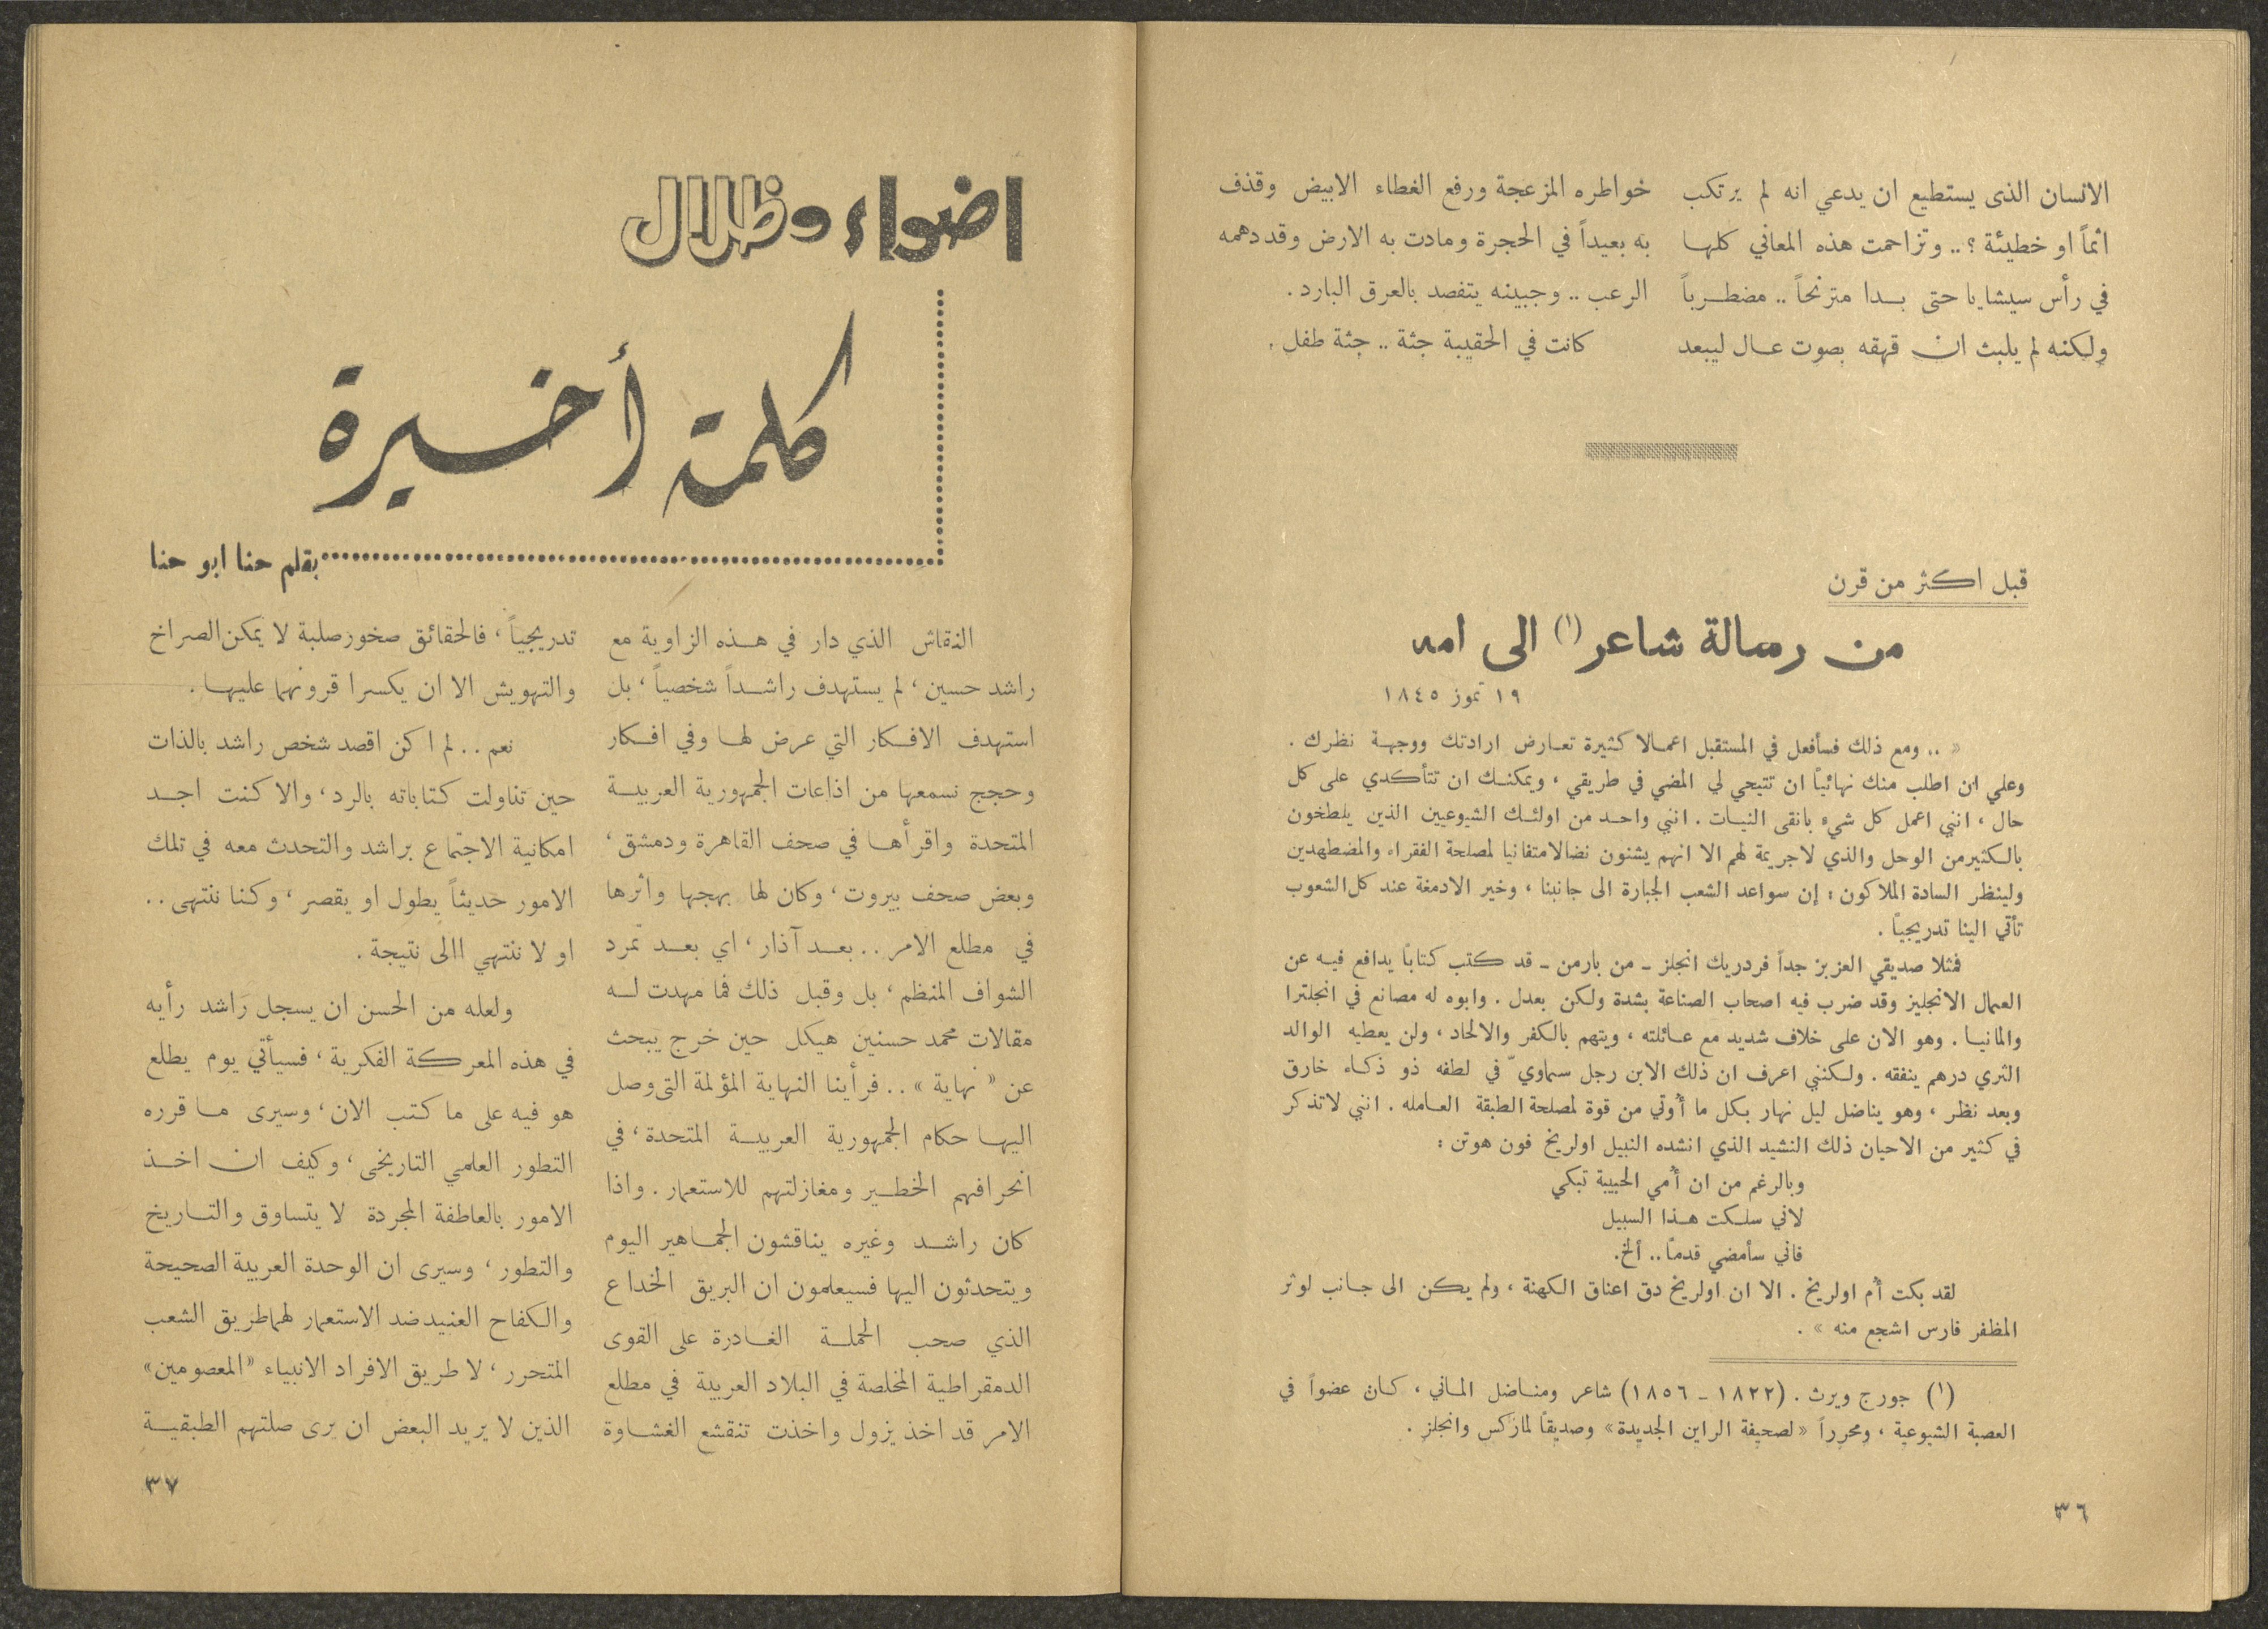 الانسان الذى يستطيع ان يدعي انه لم يرتكب
اثماً او خطيئة ؟ .. وتزاحمت هذه المعاني كلها
في رأس سيشايا حتى بدا مترنحاً .. مضطرباً
ولكنه لم يلبث ان قهقه بصوت عال ليبعد
خواطره المزعجة ورفع الغطاء الابيض وقذف
به بعيداً في الحجرة ومادت به الارض وقد دهمه
الرعب .. وجبينه يتفصد بالعرق البارد .
كانت في الحقيبة جثة .. جثة طفل .
قبل اكثر من قرن
من رسالة شاعر (١) الى امه
١٩ تموز ١٨٤٥
« .. ومع ذلك فسأفعل في المستقبل اعمالا كثيرة تعارض ارادتك ووجهة نظرك .
وعلي ان اطلب منك نهائياً ان تتيحي لي المضي في طريقي ، ويمكنك ان تتأكدي على كل
حال ، انني اعمل كل شيء بانقى النيات . انني واحد من اولئك الشيوعيين الذين يلطخون
بالكثير من الوحل والذي لا جريمة لهم الا انهم يشنون نضالا متفانيا لمصلحة الفقراء والمضطهدين
ولينظر السادة الملاكون : إن سواعد الشعب الجبارة الى جانبنا ، وخير الادمغة عند كل الشعوب
تأتي الينا تدريجياً .
فمثلا صديقي العزيز جداً فردريك انجلز ـ من بارمن ـ قد كتب كتاباً يدافع فيه عن
العمال الانجليز وقد ضرب فيه اصحاب الصناعة بشدة ولكن بعدل . وابوه له مصانع في انجلترا
والمانيا . وهو الان على خلاف شديد مع عائلته ، ويتهم بالكفر والالحاد ، ولن يعطيه الوالد
الثري درهم ينفقه . ولكنني اعرف ان ذلك الابن رجل سماويّ في لطفه ذو ذكاء خارق
وبعد نظر ، وهو يناضل ليل نهار بكل ما أوتي من قوة لمصلحة الطبقة العامله . انني لاتذكر
في كثير من الاحيان ذلك النشيد الذي انشده النبيل اولريخ فون هوتن :
وبالرغم من ان أمي الحبيبة تبكي
لاني سلكت هذا السبيل
فاني سأمضي قدماً .. ألخ .
لقد بكت أم اولريخ . الا ان اولريخ دق اعناق الكهنة ، ولم يكن الى جانب لوثر
المظفر فارس اشجع منه » .
(١) جورج ويرث . (١٨٢٢ ـ ١٨٥٦) شاعر ومناضل الماني ، كان عضواً في
العصبة الشيوعية ، ومحرراً «لصحيفة الراين الجديدة» وصديقاً لماركس وانجلز .
٣٦
اضواء وظلال
كلمة أخيرة
بقلم حنا ابو حنا
النقاش الذي دار في هذه الزاوية مع
راشد حسين ، لم يستهدف راشداً شخصياً ، بل
استهدف الافكار التي عرض لها وفي افكار
وحجج نسمعها من اذاعات الجمهورية العربية
المتحدة واقرأها في صحف القاهرة ودمشق ،
وبعض صحف بيروت ، وكان لها بهجها واثرها
في مطلع الامر .. بعد آذار ، اي بعد تمرد
الشواف المنظم ، بل وقبل ذلك فما مهدت له
مقالات محمد حسنين هيكل حين خرج يبحث
عن « نهاية » .. فرأينا النهاية المؤلمة التى وصل
اليها حكام الجمهورية العربية المتحدة ، في
انحرافهم الخطير ومغازلتهم للاستعمار . واذا
كان راشد وغيره يناقشون الجماهير اليوم
ويتحدثون اليها فسيعلمون ان البريق الخداع
الذي صحب الحملة الغادرة على القوى
الدمقراطية المخلصة في البلاد العربية في مطلع
الامر قد اخذ يزول واخذت تنقشع الغشاوة
تدريجياً ، فالحقائق صخور صلبة لا يمكن الصراخ
والتهويش الا ان يكسرا قرونهما عليها .
نعم .. لم اكن اقصد شخص راشد بالذات
حين تناولت كتاباته بالرد ، والا كنت اجد
امكانية الاجتماع براشد والتحدث معه في تلك
الامور حديثاً يطول او يقصر ، وكنا ننتهى ..
او لا ننتهي االى نتيجة .
ولعله من الحسن ان يسجل راشد رأيه
في هذه المعركة الفكرية ، فسيأتي يوم يطلع
هو فيه على ما كتب الان ، وسيرى ما قرره
التطور العلمي التاريخى ، وكيف ان اخذ
الامور بالعاطفة المجردة لا يتساوق والتاريخ
والتطور ، وسيرى ان الوحدة العربية الصحيحة
والكفاح العنيد ضد الاستعمار لهما طريق الشعب
المتحرر ، لا طريق الافراد الانبياء «المعصومين»
الذين لا يريد البعض ان يرى صلتهم الطبقية
٣٧